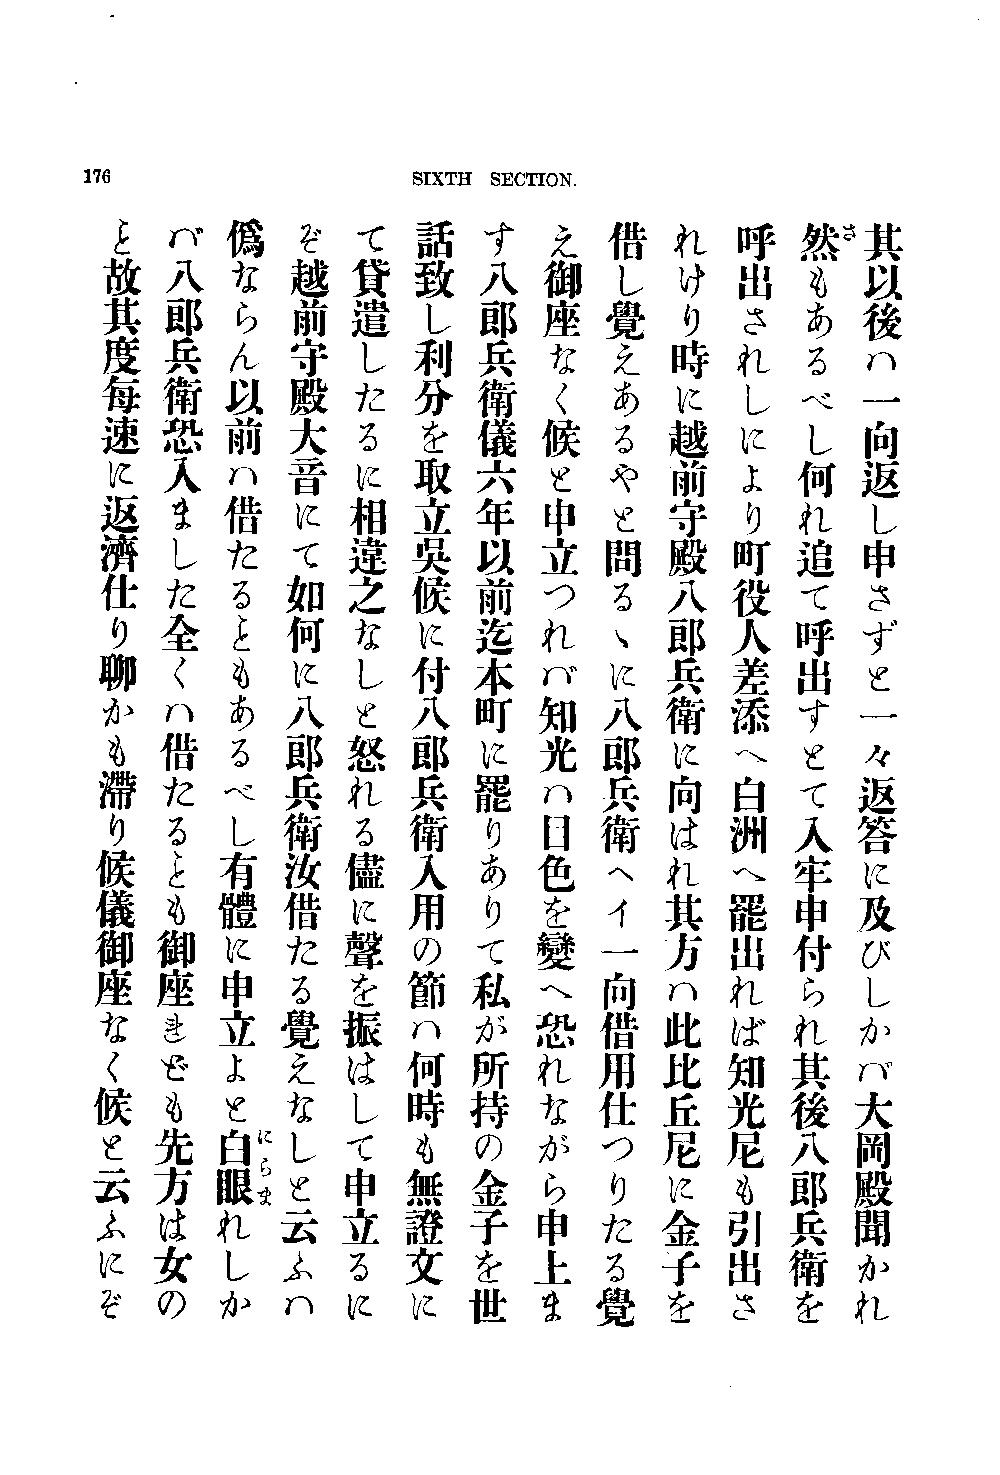 176
SIXTH SECTION.
其以後ハ一向返し申さずと一々返答に及びしかバ大岡殿聞かれ
然さもあるべし何れ追て呼出すとて入牢申付られ其後八郎兵衛を
呼出されしにより町役人差添へ白洲へ罷出れば知光尼も引出さ
れけり時に越前守殿八郎兵衛に向はれ其方ハ此比丘尼に金子を
借し覺えあるやと問るゝに八郎兵衛ヘイ一向借用仕つりたる覺
え御座なく候と申立つれバ知光ハ日色を變へ恐れながら申上ま
す八郎兵衛儀六年以前迄本町に罷りありて私が所持の金子を世
話致し利分を取立吳候に付八郎兵衛入用の節ハ何時も無證文に
て貸遣したるに相違之なしと怒れる儘に聲を振はして申立るに
ぞ越前守殿大音にて如何に八郎兵衛汝借たる覺えなしと云ふハ
僞ならん以前ハ借たるともあるべし有體に申立よと白眼にらまれしか
バ八郎兵衛恐入ました全くハ借たるとも御座きども先方は女の
と故其度每速に返濟仕り聊かも滯り候儀御座なく候と云ふにぞ